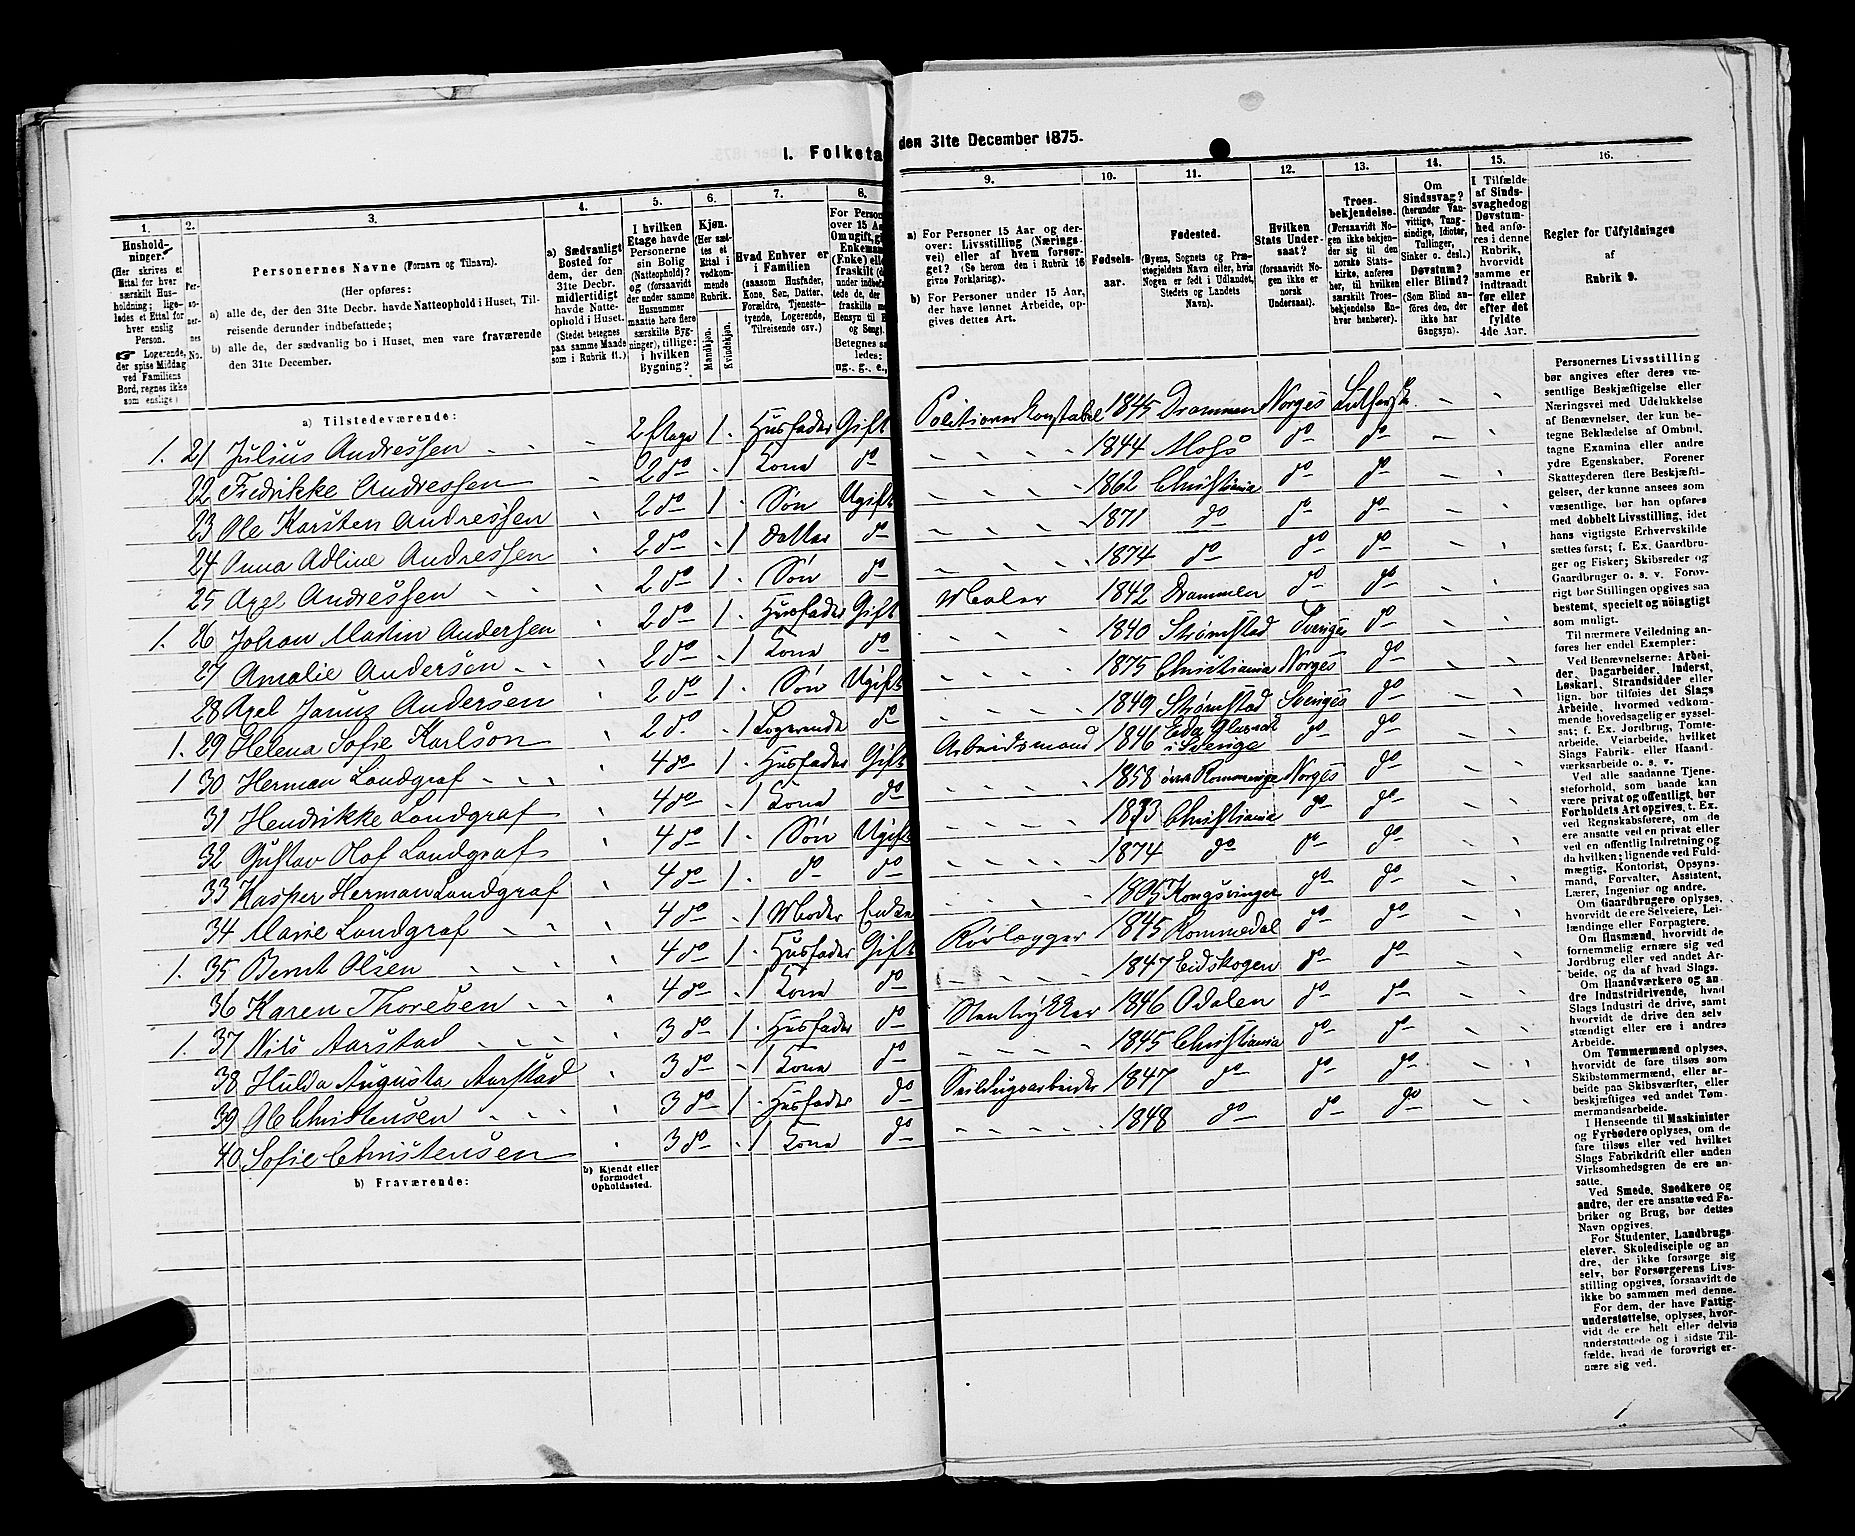 I. Folketa
den 31te December 1875.
1.
Hushold-
ninger.
(Her skrives et
Ettal for hver
særskilt Hus-
holdning; lige-
ledes et Ettal for
hver enslig
Person.
Logerende,
der spise Middag
ved Familiens
Bord, regnes ikke
som enslige)
2.
Per-
so-
ner-
nes
No.
3.
Personernes Navne (Fornavn og Tilnavn).
(Her opføres:
a) alle de, der den 31te Decbr. havde Natteophold i Huset, Til-
reisende derunder indbefattede;
b) alle de, der sædvanlig bo i Huset, men vare fraværende
den 31te December.
4.
a) Sædvanligt
Bosted for
dem, der den
31te Decbr.
midlertidigt
havde Natte-
ophold i Huset.
(Stedet betegnes
paa samme Maade
som i Rubrik 11.)
5.
I hvilken
Etage havde
Personerne
sin Bolig
(Natteophold)?
og (forsaavidt
der under samme
Husnummer
maatte høre flere
særskilte Byg-
ninger), tillige:
i hvilken
Bygning?
6.
Kjøn.
(Her sæt-
tes et
Ettal i
vedkom-
mende
Rubrik.
Mandkjøn.
Kvindekjøn.
7.
Hvad Enhver er
i Familien
(saasom Husfader,
Kone, Søn, Datter,
Forældre, Tjeneste-
tyende, Logerende,
Tilreisende osv.)
8.
For Person
over 15 Aa
Om ugift, gi
Enkeman
(Enke) elle
fraskilt (de
under indbefat
tede de, der
fraskilte m
Hensyn til B
og Seng).
Betegnes sa
ledes:
ug., g., e.,
9.
a) For Personer 15 Aar og der-
over: Livsstilling (Nærings-
vei) eller af hvem forsør-
get? (Se herom den i Rubrik 16
givne Forklaring).
b) For Personer under 15 Aar,
der have lønnet Arbeide, op-
gives dettes Art.
10.
Fødsels-
aar.
11.
Fødested.
(Byens, Sognets og Præ-
stegjeldets Navn eller, hvis
Nogen er født i Udlandet,
Stedets og Landets
Navn).
12.
Hvilken
Stats Under-
saat?
(forsaavidt No-
gen ikke er
norsk
Undersaat).
13.
Troes-
bekjendelse.
(Forsaavidt No-
gen ikke bekjen-
der sig til den
norske Stats-
kirke, anføres
her, til hvilken
særskilt Troes-
bekjendelse En-
hver henhører).
14.
Om
Sindssvag?
(herunder Van-
vittige, Tung-
sindige, Idioter,
Tullinger,
Sinker o. desl.)
Døvstum?
eller Blind?
(Som Blind an-
føres den, der
ikke har
Gangsyn).
15.
I Tilfælde
af Sinds-
svaghed og
Døvstum-
hed anfø-
res i denne
Rubrik,
hvorvidt
samme er
indtraadt
før eller
efter det
fyldte
4de Aar.
16.
Regler for Udfyldningen
af
Rubrik 9.
a) Tilstedeværende:
1. 21 Julius Andressen 2 Etage 1 Husfader Gift Politioverkonstabel 1845 Drammen Norges Luthersk
22 Fredrikke Andressen 2 do 1 Kone do 1844 Moss do do
23 Ole Karsten Andressen 2 do 1 Søn Ugift 1862 Christiania do do
24 Anna Adline Andressen 2 do 1 Datter do 1871 do do do
25 Axel Andressen 2 do 1 Søn do 1874 do do do
1. 26 Johan Martin Andersen 2 do 1 Husfader Gift Maler 1842 Drammen do do
27 Amalie Andersen 2 do 1 Kone do 1840 Strømstad Sveriges do
28 Axel Janus Andersen 2 do 1 Søn Ugift 1875 Christiania Norges do
1. 29 Helena Sofie Karlson 2 do. 1 Logerende do 1849 Strømstad Sveriges do
1 30 Herman Landgraf 4 do 1 Husfader Gift Arbeidsmand 1846 Eda i Sverige do do
31 Hendrikke Landgraf 4 do 1 Kone do 1858 Norges do
32 Gustav Olof Landgraf 4 do 1 Søn Ugift 1873 Christiania do do
33 Kasper Herman Landgraf 4 do 1 do do 1874 do do do
34 Marie Landgraf 4 do 1 Moder Enke 1805 Kongsvinger do do
1. 35 Bernt Olsen 4 do 1 Husfader Gift Rørlægger 1845 Rommedal do do
36 Karen Thoresen 4 do 1 Kone do 1847 Eidskogen do do
1. 37 Nils Aarstad 3 do 1 Husfader do Stentrykker 1846 Odalen do do
38 Hulda Augusta Aarstad 3 do 1 Kone do 1845 Christiania do do
39 Ole Christensen 3 do 1 Husfader do Seildugsarbeider 1847 do do do
40 Sofie Christensen 3 do 1 Kone do 1848 do do do
b) Fraværende:
b) Kjendt eller
formodet
Opholdssted.
Personernes Livsstilling
bør angives efter deres væ-
sentlige Beskjæftigelse eller
Næringsvei med Udelukkelse
af Benævnelser, der kun be-
tegne Beklædelse af Ombud,
tagne Examina eller andre
ydre Egenskaber. Forener
Skatteyderen flere Beskjæfti-
gelser, der kunne ansees som
væsentlige, bør han opføres
med dobbelt Livsstilling, idet
hans vigtigste Erhvervskilde
sættes først; f. Ex. Gaardbru-
ger og Fisker; Skibsreder og
Gaardbruger o. s. v. Forøv-
rigt bør Stillingen opgives saa
bestemt, specielt og nøiagtigt
som muligt.
Til nærmere Veiledning an-
føres her endel Exempler:
Ved Benævnelserne: Arbei-
der, Dagarbeider, Inderst,
Løskarl, Strandsidder eller
lign. bør tilføies det Slags
Arbeide, hvormed vedkom-
mende hovedsagelig er syssel-
sat; f. Ex. Jordbrug, Tomte-
arbeide, Veiarbeide, hvilket
Slags Fabrik- eller Haand-
værksarbeide o. s. v.
Ved alle saadanne Tjene-
steforhold, som baade kan
være privat og offentligt, bør
Forholdets Art opgives, t. Ex.
ved Regnskabsførere, om de
ere ansatte ved en privat eller
ved en offentlig Indretning og
da hvilken; lignende ved Fuld-
mægtig, Kontorist, Opsyns-
mand, Forvalter, Assistent,
Lærer, Ingeniør og andre.
Om Gaardbrugere oplyses,
hvorvidt de ere Selveiere, Lei-
lændinge eller Forpagtere.
Om Husmænd, hvorvidt de
fornemmelig ernære sig ved
Jordbrug eller ved andet Ar-
beide, og da af hvad Slags.
Om Haandværkere og an-
dre Industridrivende, hvad
Slags Industri de drive, samt
hvorvidt de drive den selv-
stændigt eller ere i andres
Arbeide.
Om Tømmermænd oplyses,
hvorvidt de fare tilsøs som
Skibstømmermænd, eller ar-
beide paa Skibsværfter, eller
beskjæftiges ved andet Tøm-
mermandsarbeide.
I Henseende til Maskinister
og Fyrbødere oplyses, om de
fare tilsøs eller ved hvilket
Slags Fabrikdrift eller anden
Virksomhedsgren de ere an-
satte.
Ved Smede, Snedkere og
andre, der ere ansatte ved Fa-
briker og Brug, bør dettes
Navn opgives.
For Studenter, Landbrugs-
elever, Skoledisciple og an-
dre, der ikke forsørge sig
selv, bør Forsørgerens Livs-
stilling opgives, forsaavidt de
ikke bo sammen med denne.
For dem, der have Fattig-
understøttelse, oplyses, hvor-
vidt de ere helt eller delvis
understøttede og i sidste Til-
fælde, hvad de forøvrigt er-
nære sig ved.